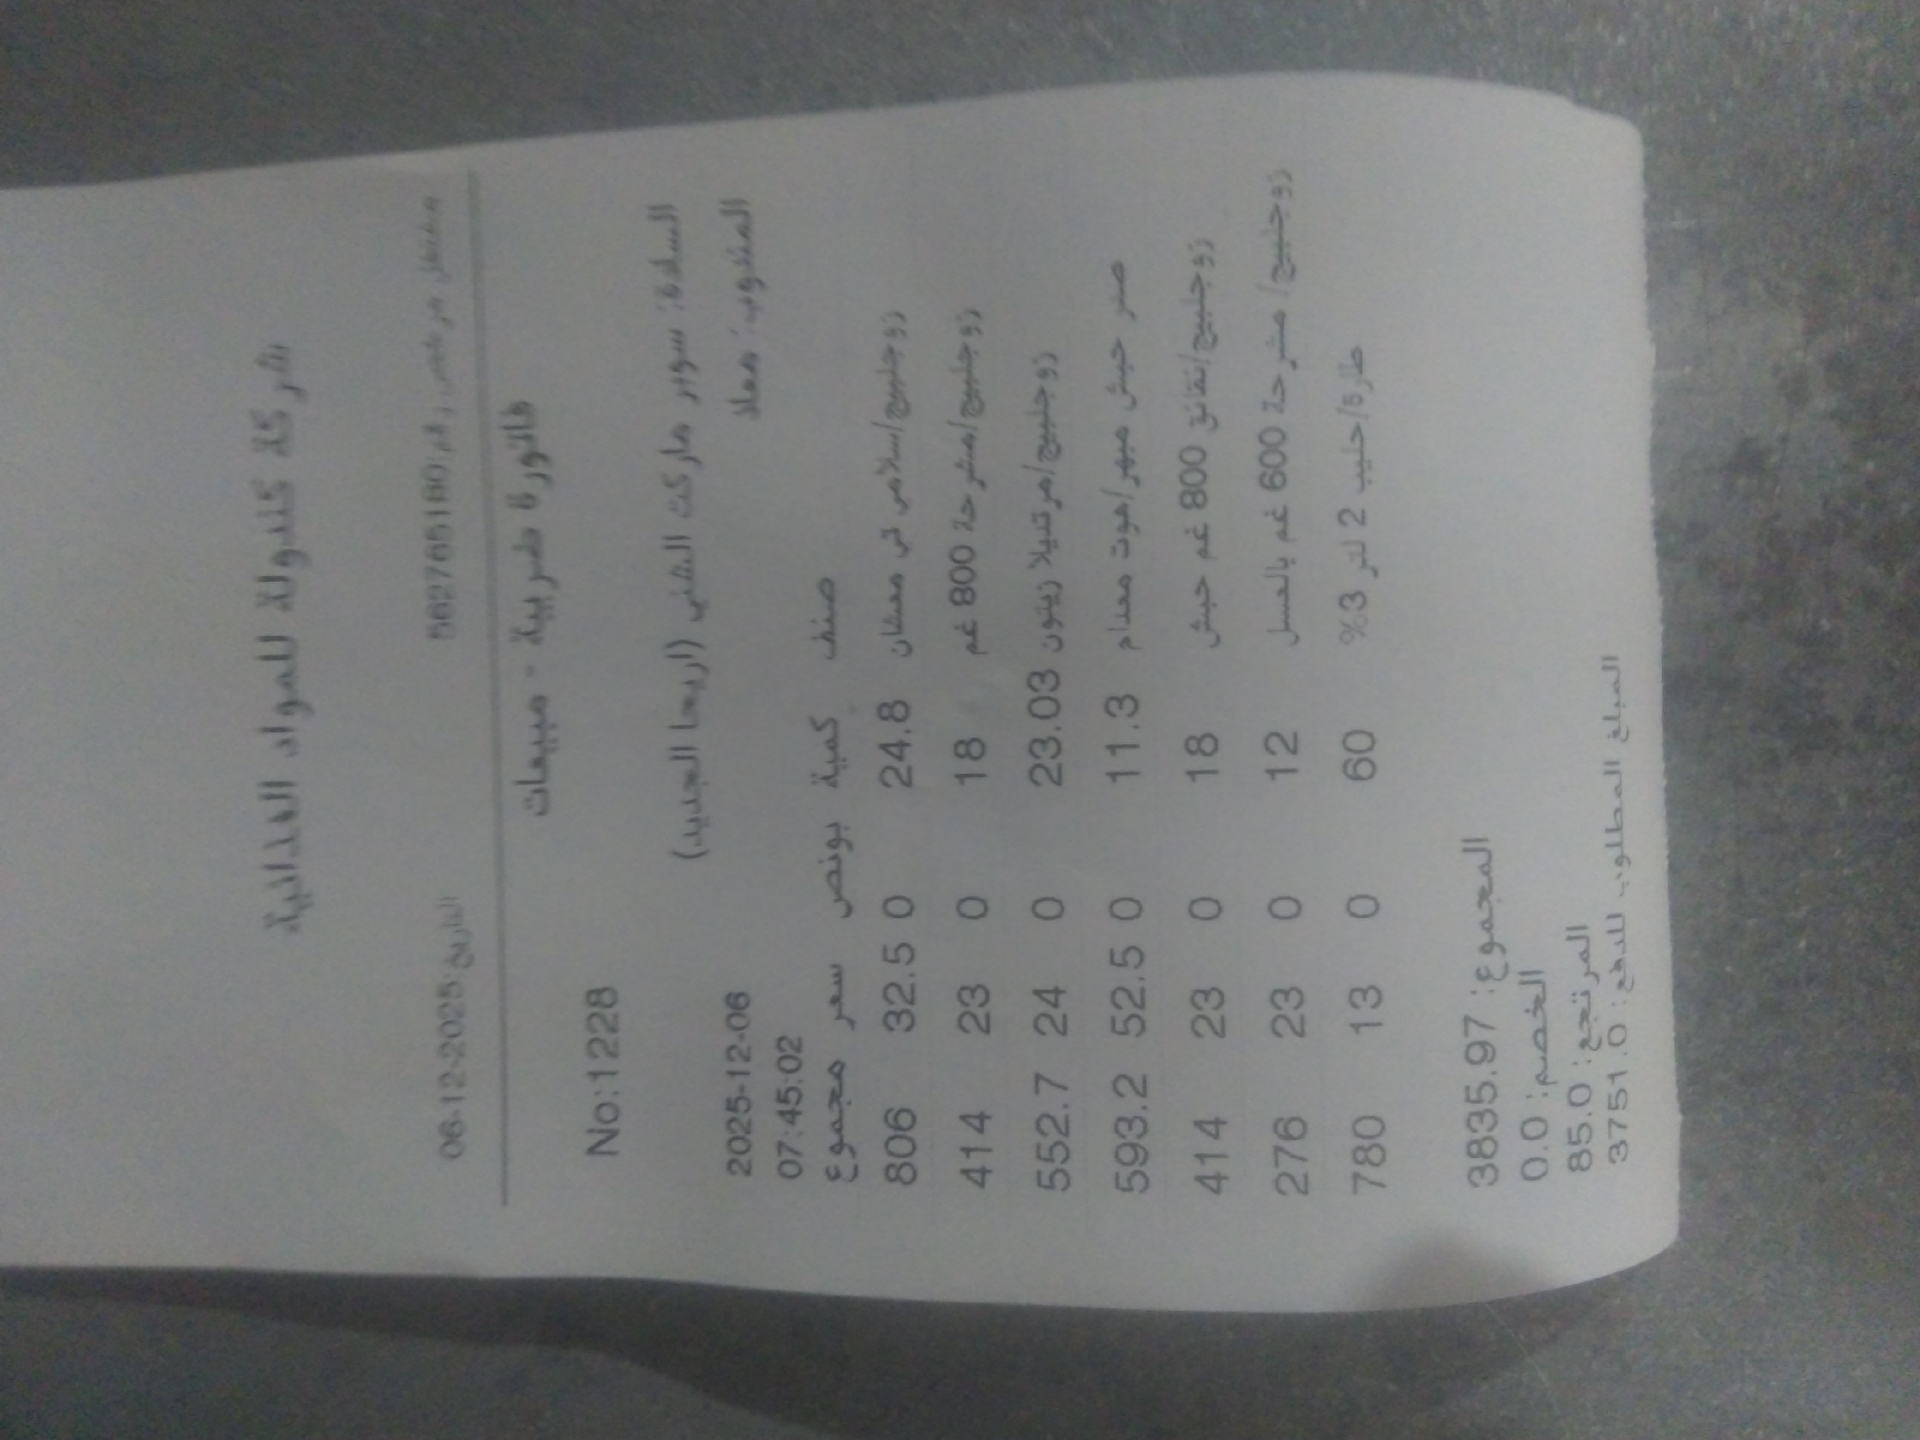 شركة كندولة للمواد الغذائية
مشتغل مرخص رقم: 562765180 التاريخ: 2025-12-06
فاتورة ضريبية - مبيعات
No:1228
السادة: سوبر ماركت التقني (اريحا الجديد)
المندوب: معاذ 2025-12-06
07:45:02
صنف كمية بونص سعر مجموع
زوجلبيج/سلامي تي معشان 24.8 0 32.5 806
زوجلبيج/مشرحة 800 غم 18 0 23 414
زوجلبيج/مرتديلا زيتون 23.03 0 24 552.7
صدر حبش مبهر/هوت معدام 11.3 0 52.5 593.2
زوجلبيج/نقانق 800 غم حبش 18 0 23 414
زوجلبيج/ مشرحة 600 غم بالعسل 12 0 23 276
طارة/حليب 2 لتر 3% 60 0 13 780
المجموع: 3835.97
الخصم: 0.0
المرتجع: 85.0
المبلغ المطلوب للدفع: 3751.0